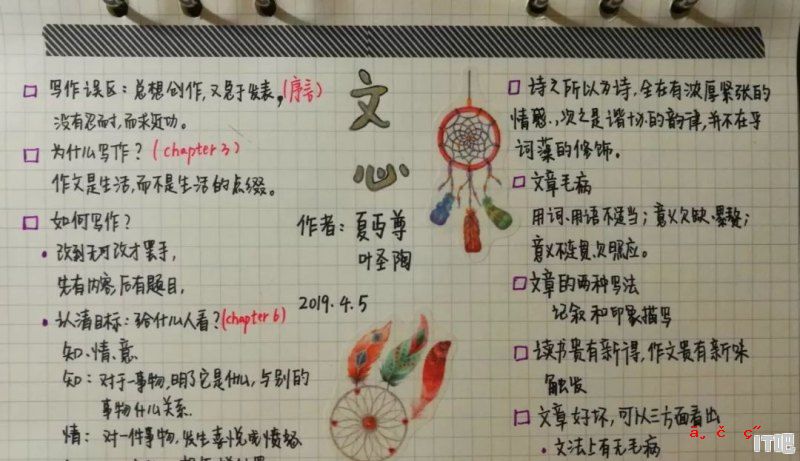 写作误区：总想创作，又急于发表，(序言)
没有忍耐，而求速功。
为什么写作？(chapter 3)
作文是生活，而不是生活的点缀。
如何写作？
改到无可改才罢手，
先有内容，后有题目，
认清目标：给什么人看？(chapter 6)
知、情、意
知：对于一事物，明了它是什么，与别的
事物什么关系.
情：对一件事物，发生喜悦或愤怒
文心
作者：夏丏尊
叶圣陶
2019.4.5
诗之所以为诗，全在有浓厚紧张的
情感，次之是谐协的韵律，并不在乎
词藻的修饰。
文章毛病
用词、用语不适当；意义欠缺、累赘；
意义不连贯、欠照应。
文章的两种写法
记叙和印象描写
读书贵有新得，作文贵有新味
触发
文章好坏，可以三方面看出
文法上有无毛病
IT吧